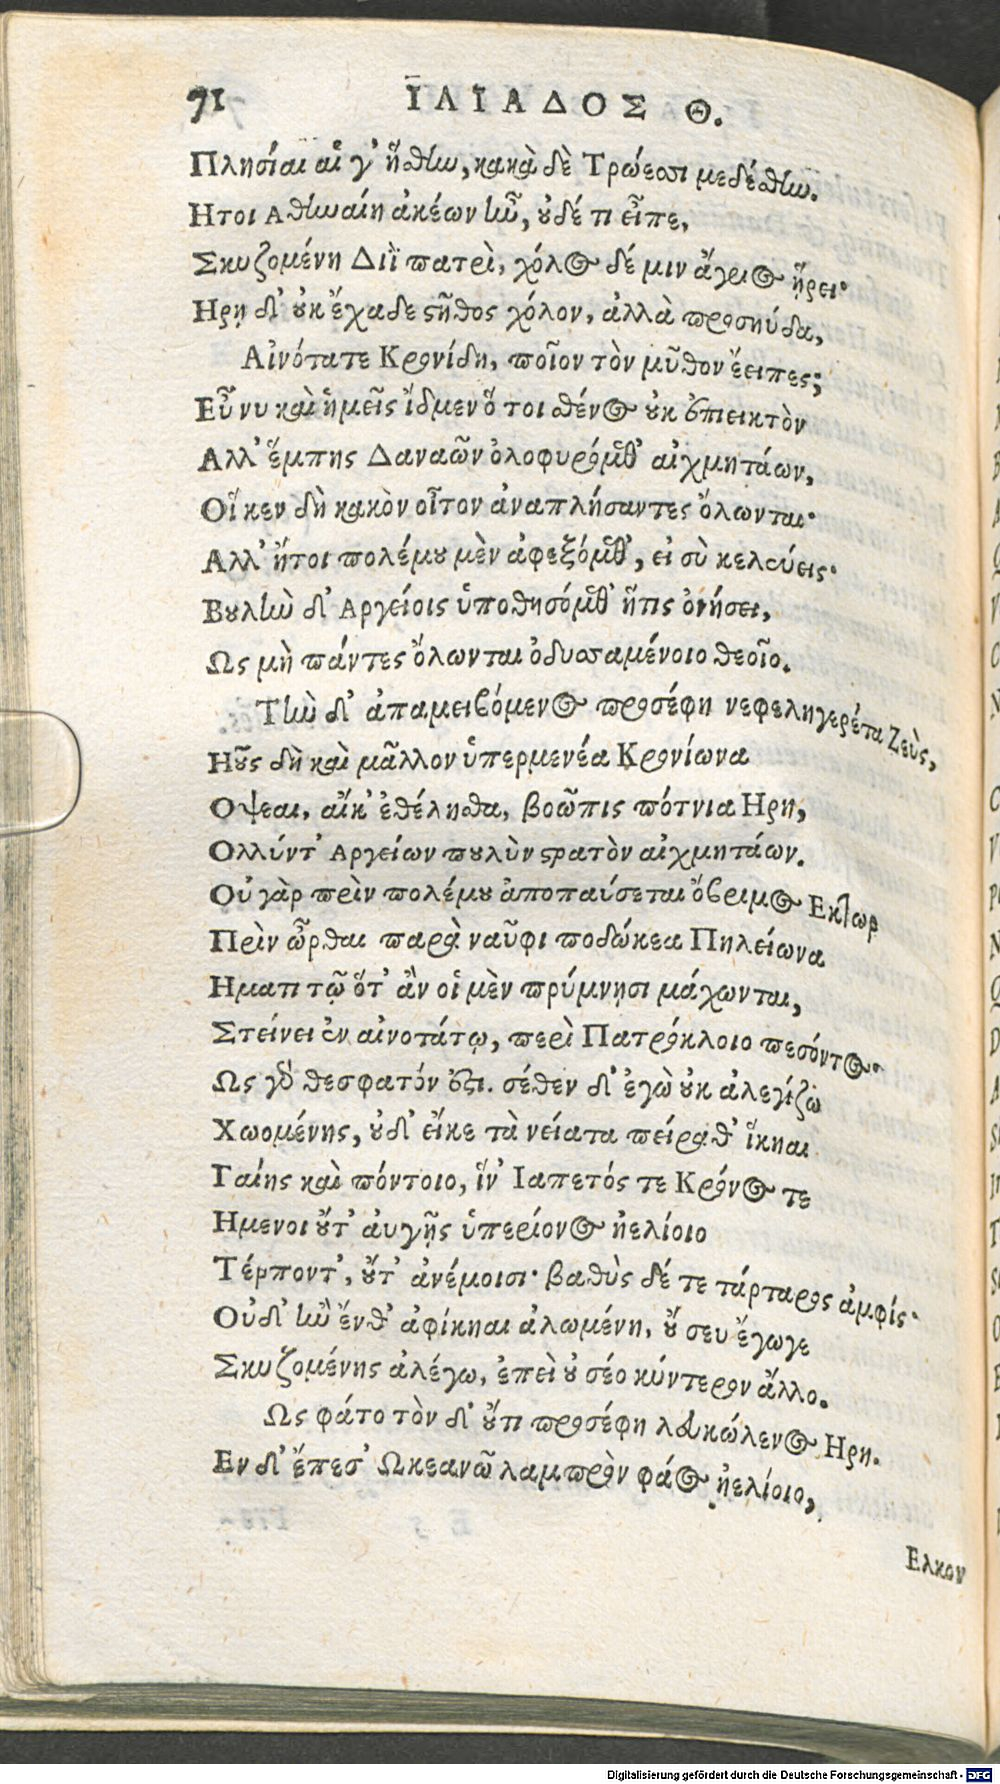 71 ΙΛΙΑΔΟΣ Θ.
Πλησίαι αἵ γ' ἥσθην, κακὰ δὲ Τρώεσσι μεδέσθην.
Ητοι Αθηναίη ἀκέων ἦν, οὐδέ τι εἶπε,
Σκυζομένη Διῒ πατρὶ, χόλος δέ μιν ἄγριος ᾕρει·
Ηρῃ δ' οὐκ ἔχαδε στῆθος χόλον, ἀλλὰ προσηύδα,
Αἰνότατε Κρονίδη, ποῖον τὸν μῦθον ἔειπες;
Εὖ νυ καὶ ἡμεῖς ἴδμεν ὅ τοι σθένος οὐκ ἐπιεικτὸν
Αλλ' ἔμπης Δαναῶν ὀλοφυρόμεθ' αἰχμητάων,
Οἵ κεν δὴ κακὸν οἶτον ἀναπλήσαντες ὄλωνται·
Αλλ' ἤτοι πολέμου μὲν ἀφεξόμεθ', εἰ σὺ κελεύεις·
Βουλὴν δ' Αργείοις ὑποθησόμεθ' ἥτις ὀνήσει,
Ως μὴ πάντες ὄλωνται ὀδυσσαμένοιο θεοῖο.
Τὴν δ' ἀπαμειβόμενος προσέφη νεφεληγερέτα Ζεὺς,
Ηοῦς δὴ καὶ μᾶλλον ὑπερμενέα Κρονίωνα
Οψεαι, αἴκ' ἐθέλησθα, βοῶπις πότνια Ηρη,
Ολλύντ' Αργείων πουλὺν στρατὸν αἰχμητάων.
Οὐ γὰρ πρὶν πολέμου ἀποπαύσεται ὄβριμος Εκτωρ
Πρὶν ὦρθαι παρὰ ναῦφι ποδώκεα Πηλείωνα
Ηματι τῷ ὅτ' ἂν οἱ μὲν πρύμνησι μάχωνται,
Στείνει ἐν αἰνοτάτῳ, περὶ Πατρόκλοιο πεσόντος·
Ως γὰρ θεσφατόν ἐστι. σέθεν δ' ἐγὼ οὐκ ἀλεγίζω
Χωομένης, οὐδ' εἴκε τὰ νείατα πείραθ' ἵκηαι
Γαίης καὶ πόντοιο, ἵν' Ιαπετός τε Κρόνος τε
Ημενοι οὔτ' αὐγῇς ὑπερίονος ἠελίοιο
Τέρποντ', οὔτ' ἀνέμοισι· βαθὺς δέ τε τάρταρος ἀμφίς·
Οὐδ' ἢν ἔνθ' ἀφίκηαι ἀλωμένη, οὔ σευ ἔγωγε
Σκυζομένης ἀλέγω, ἐπεὶ οὐ σέο κύντερον ἄλλο.
Ως φάτο τὸν δ' οὔτι προσέφη λευκώλενος Ηρη.
Εν δ' ἔπεσ' Ωκεανῶ λαμπρὸν φάος ἠελίοιο,
Ελκον
Digitalisierung gefördert durch die Deutsche Forschungsgemeinschaft - DFG